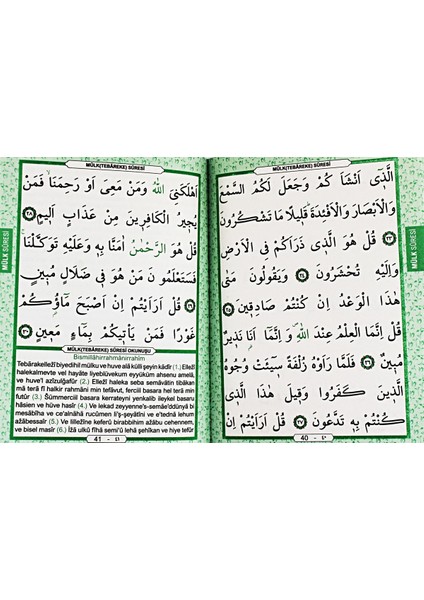 MÜLK(TEBÂREKE) SÛRESİ
الَّذ۪ٓي اَنْشَاَ كُمْ وَجَعَلَ لَكُمُ السَّمْعَ
وَالْاَبْصَارَ وَالْاَفْـِٔدَةَ قَل۪يلًا مَا تَشْكُرُونَ
﴿٢٣﴾ قُلْ هُوَ الَّذ۪ي ذَرَاَكُمْ فِي الْاَرْضِ
وَاِلَيْهِ تُحْشَرُونَ ﴿٢٤﴾ وَيَقُولُونَ مَتٰى
هٰذَا الْوَعْدُ اِنْ كُنْتُمْ صَادِق۪ينَ ﴿٢٥﴾
قُلْ اِنَّمَا الْعِلْمُ عِنْدَ اللّٰهِ وَ اِنَّمَٓا اَنَا۬ نَذ۪يرٌ
مُب۪ينٌ ﴿٢٦﴾ فَلَمَّا رَاَوْهُ زُلْفَةً س۪ٓيـَٔتْ وُجُوهُ
الَّذ۪ينَ كَفَرُوا وَق۪يلَ هٰذَا الَّذ۪ي
كُنْتُمْ بِه۪ تَدَّعُونَ ﴿٢٧﴾ قُلْ اَرَاَيْتُمْ اِنْ
40 - ٤٠
MÜLK SÛRESİ
MÜLK(TEBÂREKE) SÛRESİ
اَهْلَكَنِيَ اللّٰهُ وَمَنْ مَعِيَ اَوْ رَحِمَنَاۙ فَمَنْ
يُج۪يرُ الْكَافِر۪ينَ مِنْ عَذَابٍ اَل۪يمٍ ﴿٢٨﴾
قُلْ هُوَ الرَّحْمٰنُ اٰمَنَّا بِه۪ وَعَلَيْهِ تَوَكَّلْنَاۚ
فَسَتَعْلَمُونَ مَنْ هُوَ ف۪ي ضَلَالٍ مُب۪ينٍ
﴿٢٩﴾ قُلْ اَرَاَيْتُمْ اِنْ اَصْبَحَ مَٓاؤُ۬كُمْ
غَوْرًا فَمَنْ يَأْت۪يكُمْ بِمَٓاءٍ مَع۪ينٍ ﴿٣٠﴾
MÜLK(TEBÂREKE) SÛRESİ OKUNUŞU
Bismillâhirrahmânirrahîm
Tebârakellezî biyedihil mülku ve huve alâ külli şeyin kadîr (1.) Ellezî
halekalmevte vel hayâte liyeblüvekum eyyüküm ahsenu amelâ,
ve huvel azîzulğafûr (2.) Ellezî haleka seba semâvâtin tibâkan
mâ terâ fî halkir rahmâni min tefâvut, ferciil basara hel terâ min
futûr (3.) Sümmerciil basara kerrateyni yenkalib ileykel basaru
hâsien ve hüve hasîr (4.) Ve lekad zeyyenne's-semâe'ddünyâ bi
mesâbîha ve ce'alnâhâ rucûmen li'ş-şeyâtîni ve e'tednâ lehum
azâbessaîr (5.) Ve lillezîne keferû birabbihim azâbu cehennem,
ve bisel masîr (6.) İzâ ulkû fîhâ semi'û lehâ şehîkan ve hiye tefûr
41 - ٤١
MÜLK SÛRESİ